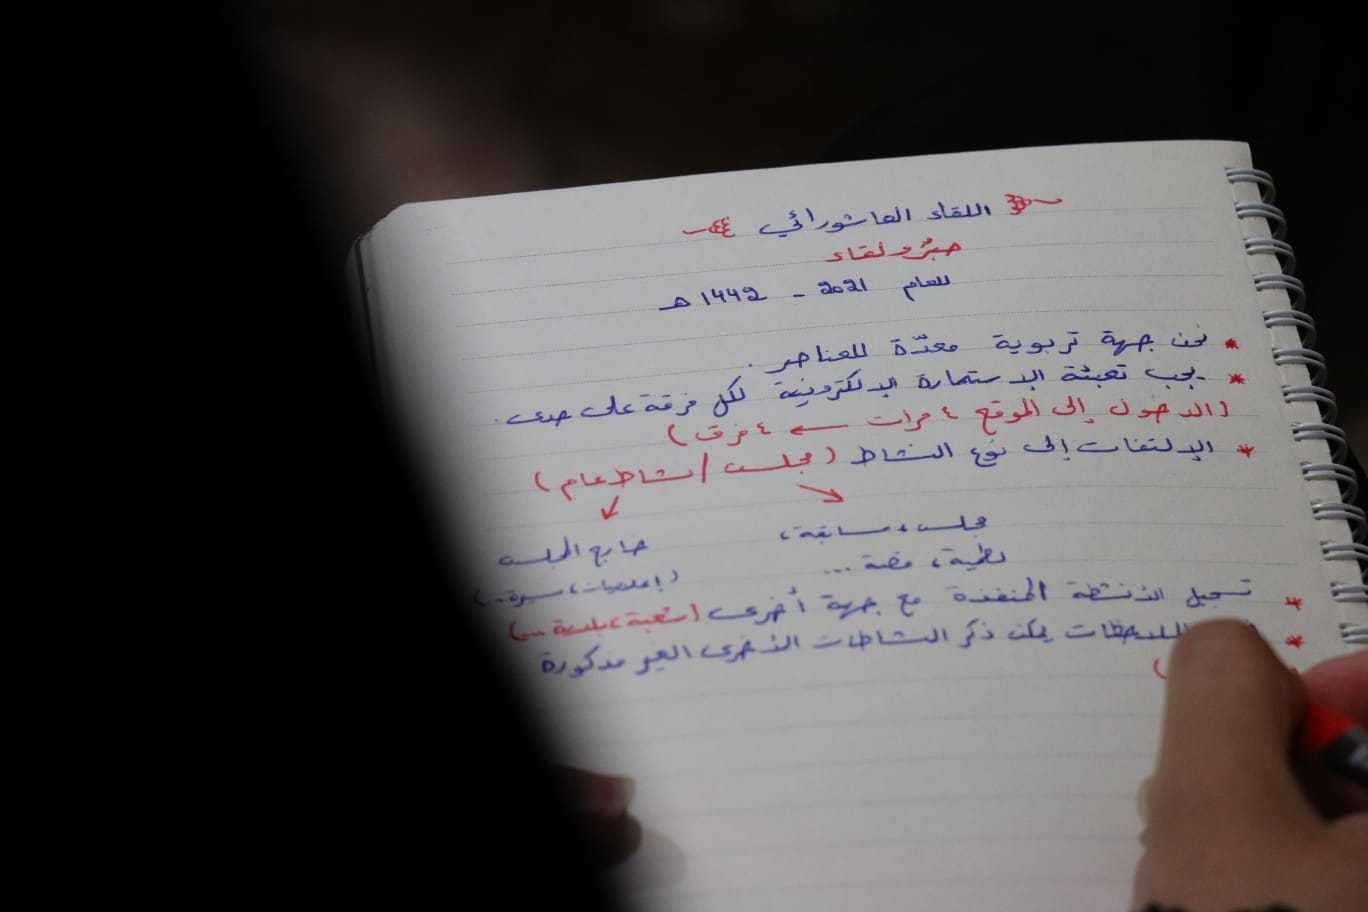 اللقاء العاشورائي
صبرٌ ولقاء
للعام 2021 - 1442 هـ
* نحن جهة تربوية معدّة للعناصر.
* يجب تعبئة الإستمارة الإلكترونية لكل فرقة على حدى.
(الدخول إلى الموقع ٤ مرات ← ٤ فرق)
* الإلتفات إلى نوع النشاط (مجلس / نشاط عام)
مجلس، مسابقة،
لطمية، قصة ...
خارج المجلس
(إعلاميات، مسيرة...)
* تسجيل الأنشطة المنفذة مع جهة أخرى (شعبة، بلدية ...)
* الملاحظات يمكن ذكر النشاطات الأخرى الغير مذكورة